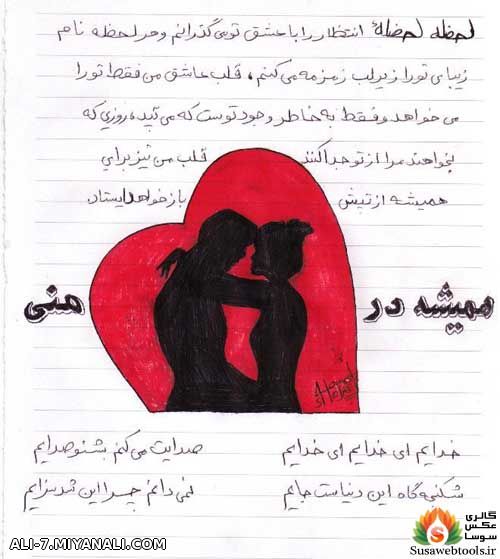 لحظه لحظهٔ انتظار را با عشق تو می گذرانم و هر لحظه نام
زیبای تو را زیر لب زمزمه می کنم، قلب عاشق من فقط تو را
می خواهد و فقط به خاطر وجود توست که می تپد، روزی که
بخواهند مرا از تو جدا کنند قلب من نیز برای
همیشه از تپش باز خواهد ایستاد
همیشه در منی
خدایم ای خدایم ای خدایم صدایت می کنم بشنو صدایم
شکنجه گاه این دنیاست جایم نمی دانم چرا این شد سزایم
گالری
عکس
سوسا
Susawebtools.ir
ALI-7.MIYANALI.COM